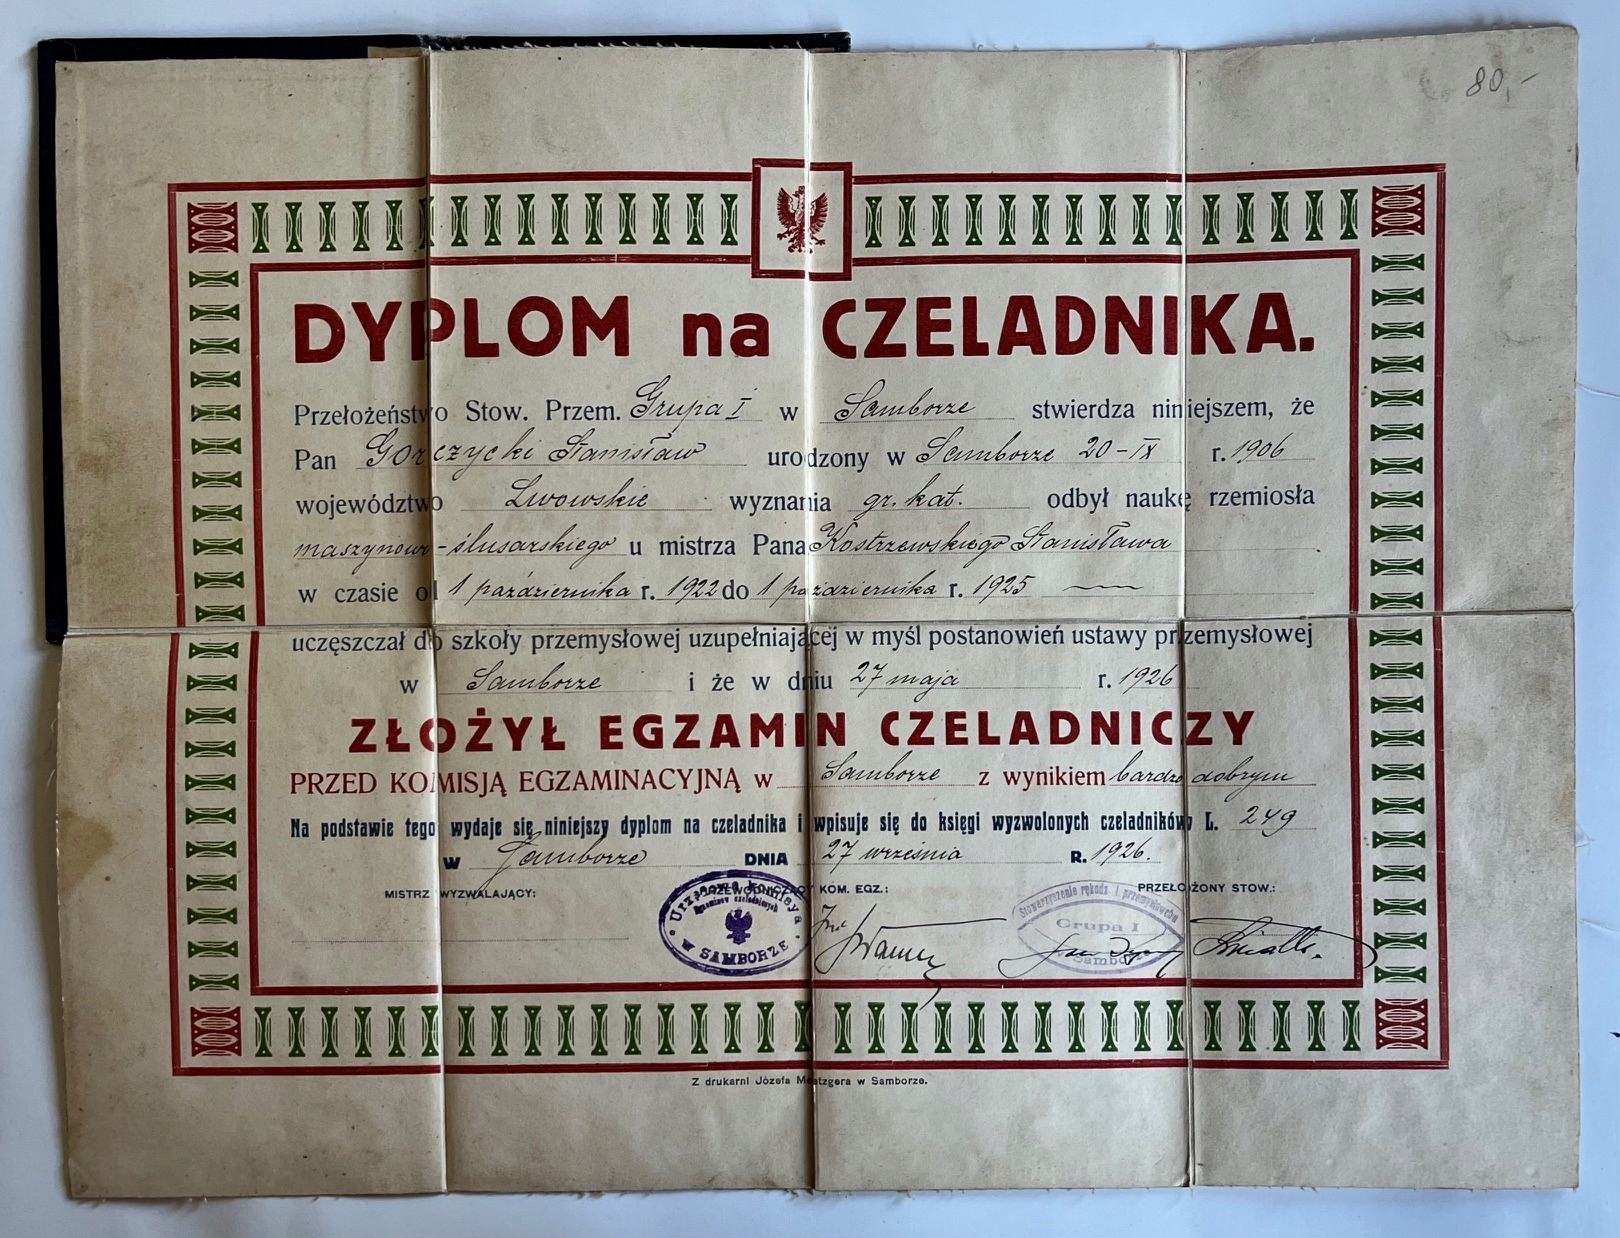 80,-
DYPLOM na CZELADNIKA.
Przełożeństwo Stow. Przem. Grupa I w Samborze stwierdza niniejszem, że
Pan Gorczycki Stanisław urodzony w Samborze 20-IX r. 1906
województwo Lwowskie wyznania gr. kat. odbył naukę rzemiosła
maszynowo-ślusarskiego u mistrza Pana Kostrzewskiego Stanisława
w czasie od 1 października r. 1922 do 1 października r. 1925
uczęszczał do szkoły przemysłowej uzupełniającej w myśl postanowień ustawy przemysłowej
w Samborze i że w dniu 27 maja r. 1926
ZŁOŻYŁ EGZAMIN CZELADNICZY
PRZED KOMISJĄ EGZAMINACYJNĄ w Samborze z wynikiem bardzo dobrym
Na podstawie tego wydaje się niniejszy dyplom na czeladnika i wpisuje się do księgi wyzwolonych czeladników L. 249
w Samborze DNIA 27 września R. 1926.
MISTRZ WYZWALAJĄCY: PRZEWODNICZĄCY KOM. EGZ.: PRZEŁOŻONY STOW.:
Urzędowa Komisya
Egzaminów czeladniczych
w SAMBORZE
Stowarzyszenie rękodz. i przemysłowców
Grupa I
w Samborze
Z drukarni Józefa Meetzgera w Samborze.